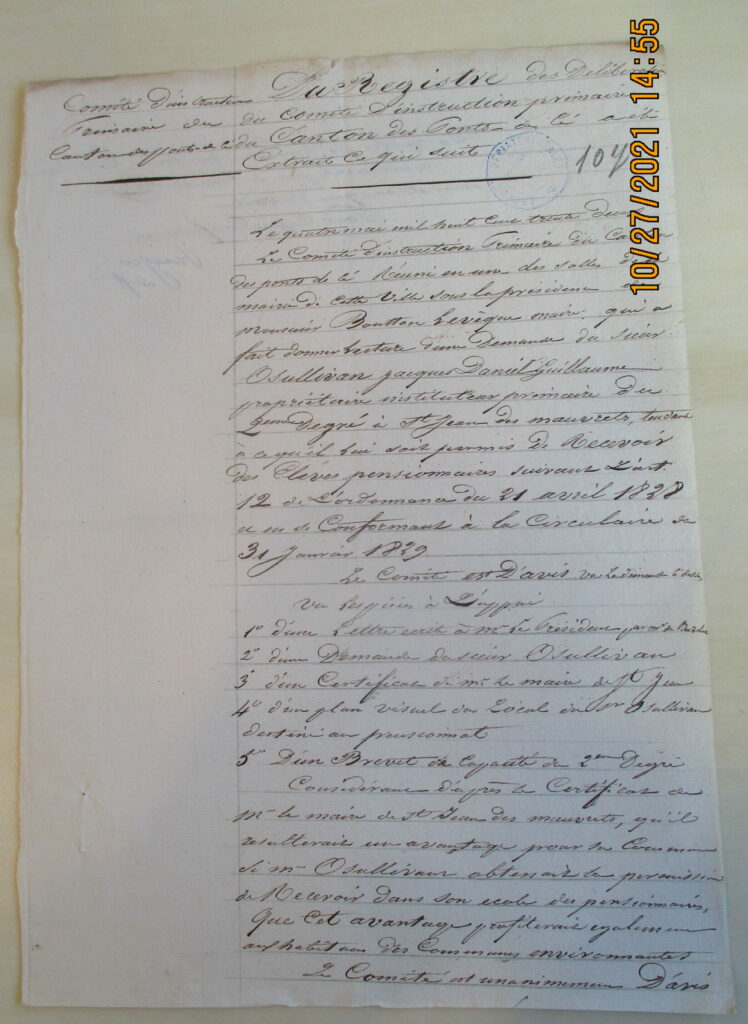 Comité d'instruction
Primaire du
Canton des ponts de cé
Du Registre des Déliberat
du comité d'instruction primaire
du Canton des Ponts de cé a été
Extrait ce qui suit
104
10/27/2021 14:55
Le quatre mai mil huit cent trente deux
Le Comité d'instruction Primaire du Canton
des ponts de cé Réuni en une des salles de la
mairie de cette Ville sous la présidence de
monsieur Boutton Levêque maire qui a
fait donner lecture d'une Demande du sieur
Osullivan jacques Daniel Guillaume
propriétaire instituteur primaire du
2eme Degré à St Jean des mauvrets, tendant
à ce qu'il lui soit permis de Recevoir
des Elèves pensionnaires suivant L'art
12 de L'ordonnance du 21 avril 1828
et en se Conformant à la Circulaire du
31 Janvier 1829
Le Comité est D'avis vu la demande
vu les pièces à L'appui
1° d'une Lettre ecrite à mr Le Président par mr
2° d'une Demande du sieur Osullivan
3° d'un Certificat de mr le maire de St Jean
4° d'un plan visuel du Local du sr Osullivan
destiné au pensionnat
5° D'un Brevet de Capacité du 2eme Dégré
Considérant d'après le Certificat de
Mr le maire de St Jean des mauvrets, qu'il
resulterait un avantage pour sa Commune
si mr Osullivan obtenait la permission
de Recevoir dans son ecole des pensionnaires,
que cet avantage profiterait egalement
aux habitans des Communes environnantes
Le Comité est unanimement D'avis